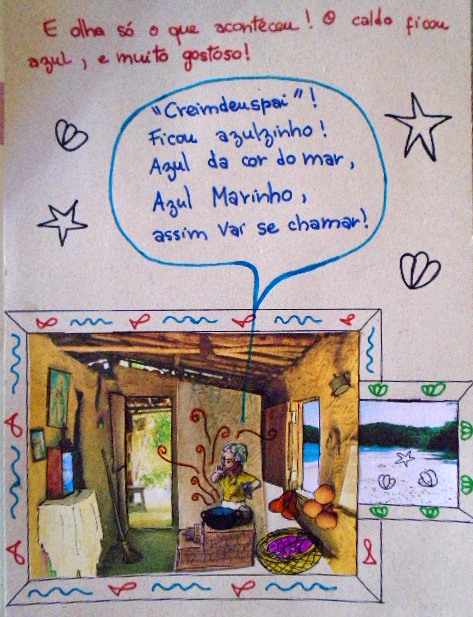 E olha só o que aconteceu! O caldo ficou
azul, e muito gostoso!
"Creimdeuspai"!
Ficou azulzinho!
Azul da cor do mar,
Azul Marinho,
assim vai se chamar!